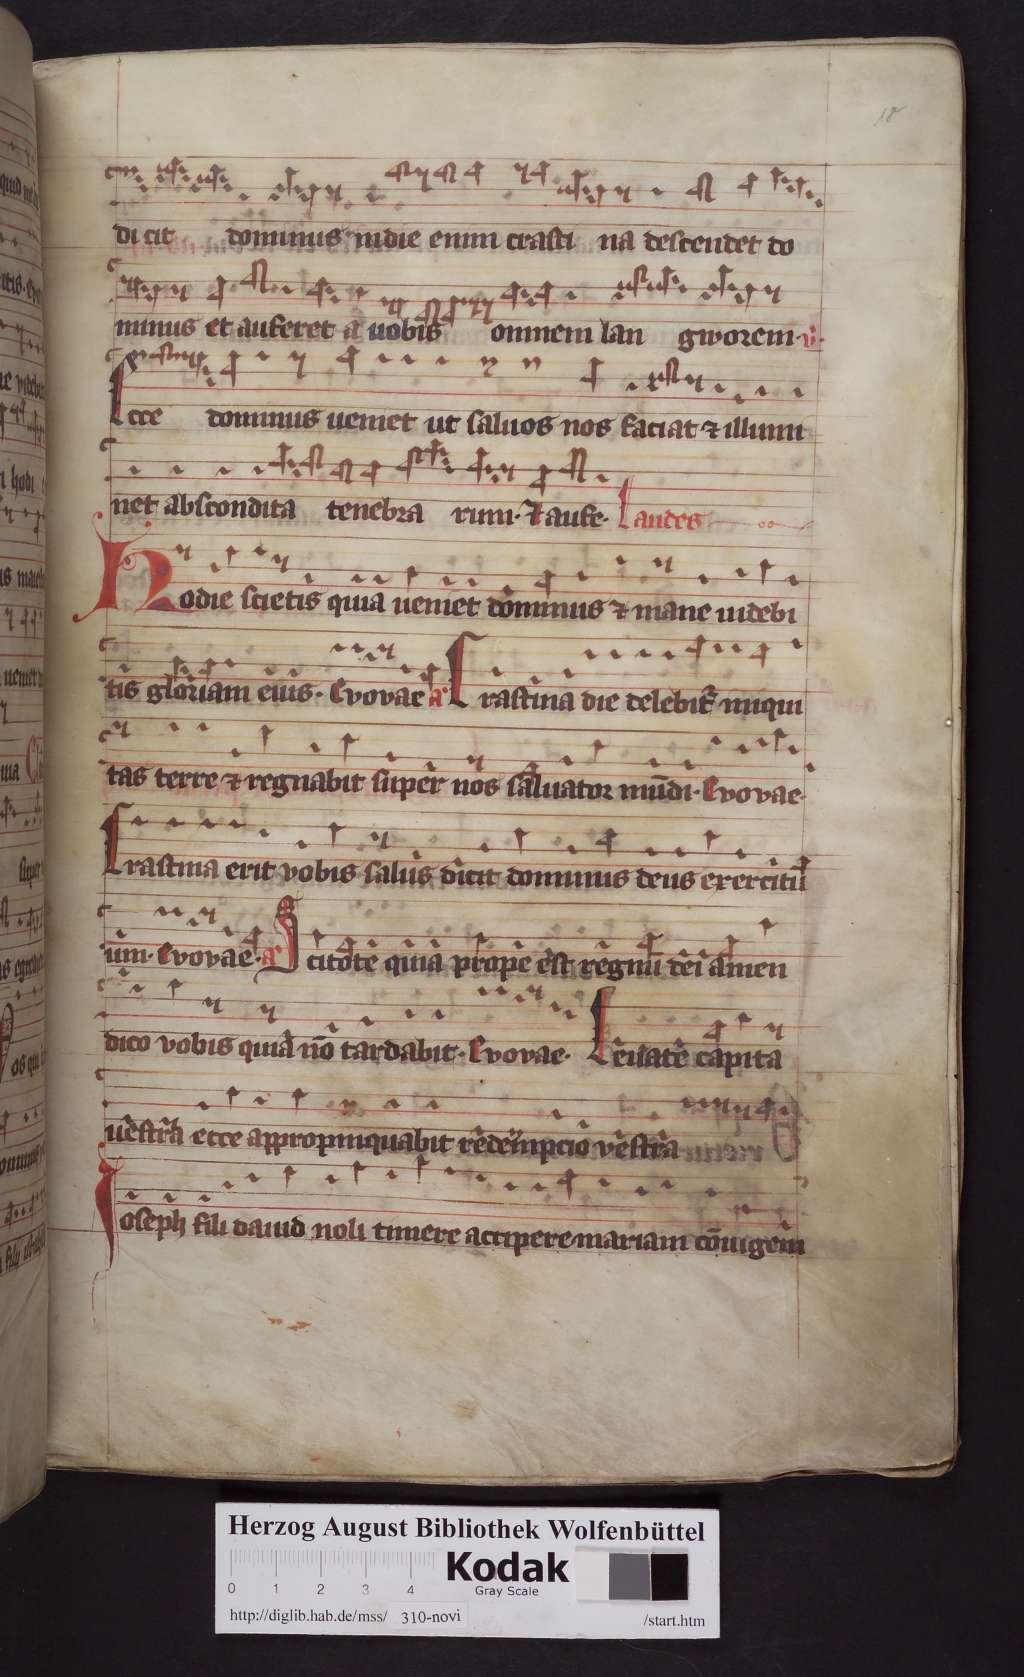 18
di cit dominus in die enim crasti na descendet do
minus et auferet a vobis omnem lan gworem. v.
Ecce dominus veniet ut salvos nos faciat ⁊ illumi
net abscondita tenebra rum. Et aufe. Laudes
Hodie scietis quia veniet dominus ⁊ mane videbi
tis gloriam eius. Evovae a Crastina die delebit͛ iniqui
tas terre ⁊ regnabit super nos salvator mundi. Evovae.
Crastina erit vobis salus dicit dominus deus exercitu
um. Evovae. a Scitote quia prope est regnū dei amen
dico vobis quia nō tardabit. Evovae. Levate capita
vestra ecce appropinquabit redempcio vestra
Joseph fili david noli timere accipere mariam coniugem
Herzog August Bibliothek Wolfenbüttel
Kodak
Gray Scale
0 1 2 3 4
http://diglib.hab.de/mss/ 310-novi /start.htm